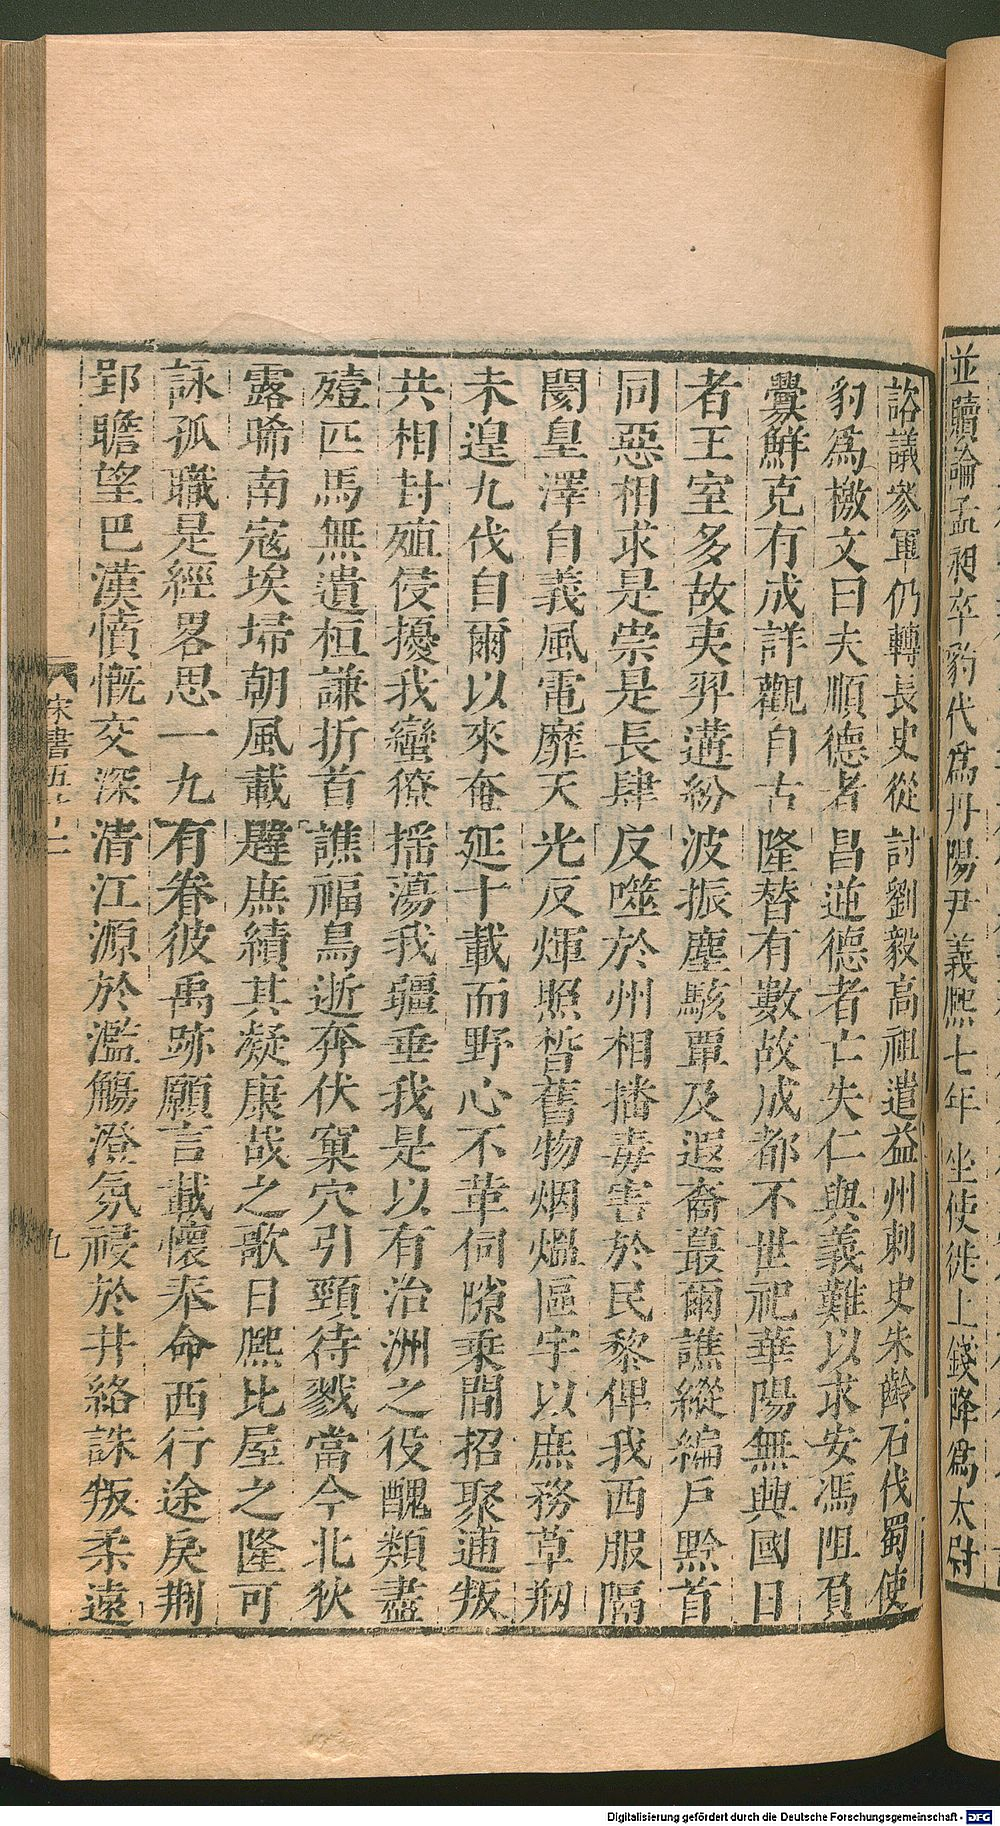 並贖論孟昶卒豹代爲丹陽尹義熙七年坐使徙上錢降爲太尉
諮議參軍仍轉長史從討劉毅高祖遣益州刺史朱齡石伐蜀使
豹爲檄文曰夫順德者昌逆德者亡失仁與義難以求安馮阻負
釁鮮克有成詳觀自古隆替有數故成都不世祀華陽無興國日
者王室多故夷羿遘紛波振塵駭覃及遐裔蕞爾譙縱編戶黔首
同惡相求是崇是長肆反噬於州相播毒害於民黎俾我西服隔
閡皇澤自義風電靡天光反煇照晢舊物烟熅區宇以庶務草刱
未遑九伐自爾以來奄延十載而野心不革伺隙乘間招聚逋叛
共相封殖侵擾我蠻獠摇蕩我疆垂我是以有治洲之役醜類盡
殪匹馬無遺桓謙折首譙福鳥逝奔伏窠穴引頸待戮當今北狄
露晞南寇埃埽朝風載韙庶績其凝康哉之歌日熙比屋之隆可
詠孤職是經畧思一九有眷彼禹跡願言載懷奉命西行途戾荆
郢瞻望巴漢憤慨交深清江源於濫觴澄氛祲於井絡誅叛柔遠
宋書五十二
九
Digitalisierung gefördert durch die Deutsche Forschungsgemeinschaft - DFG